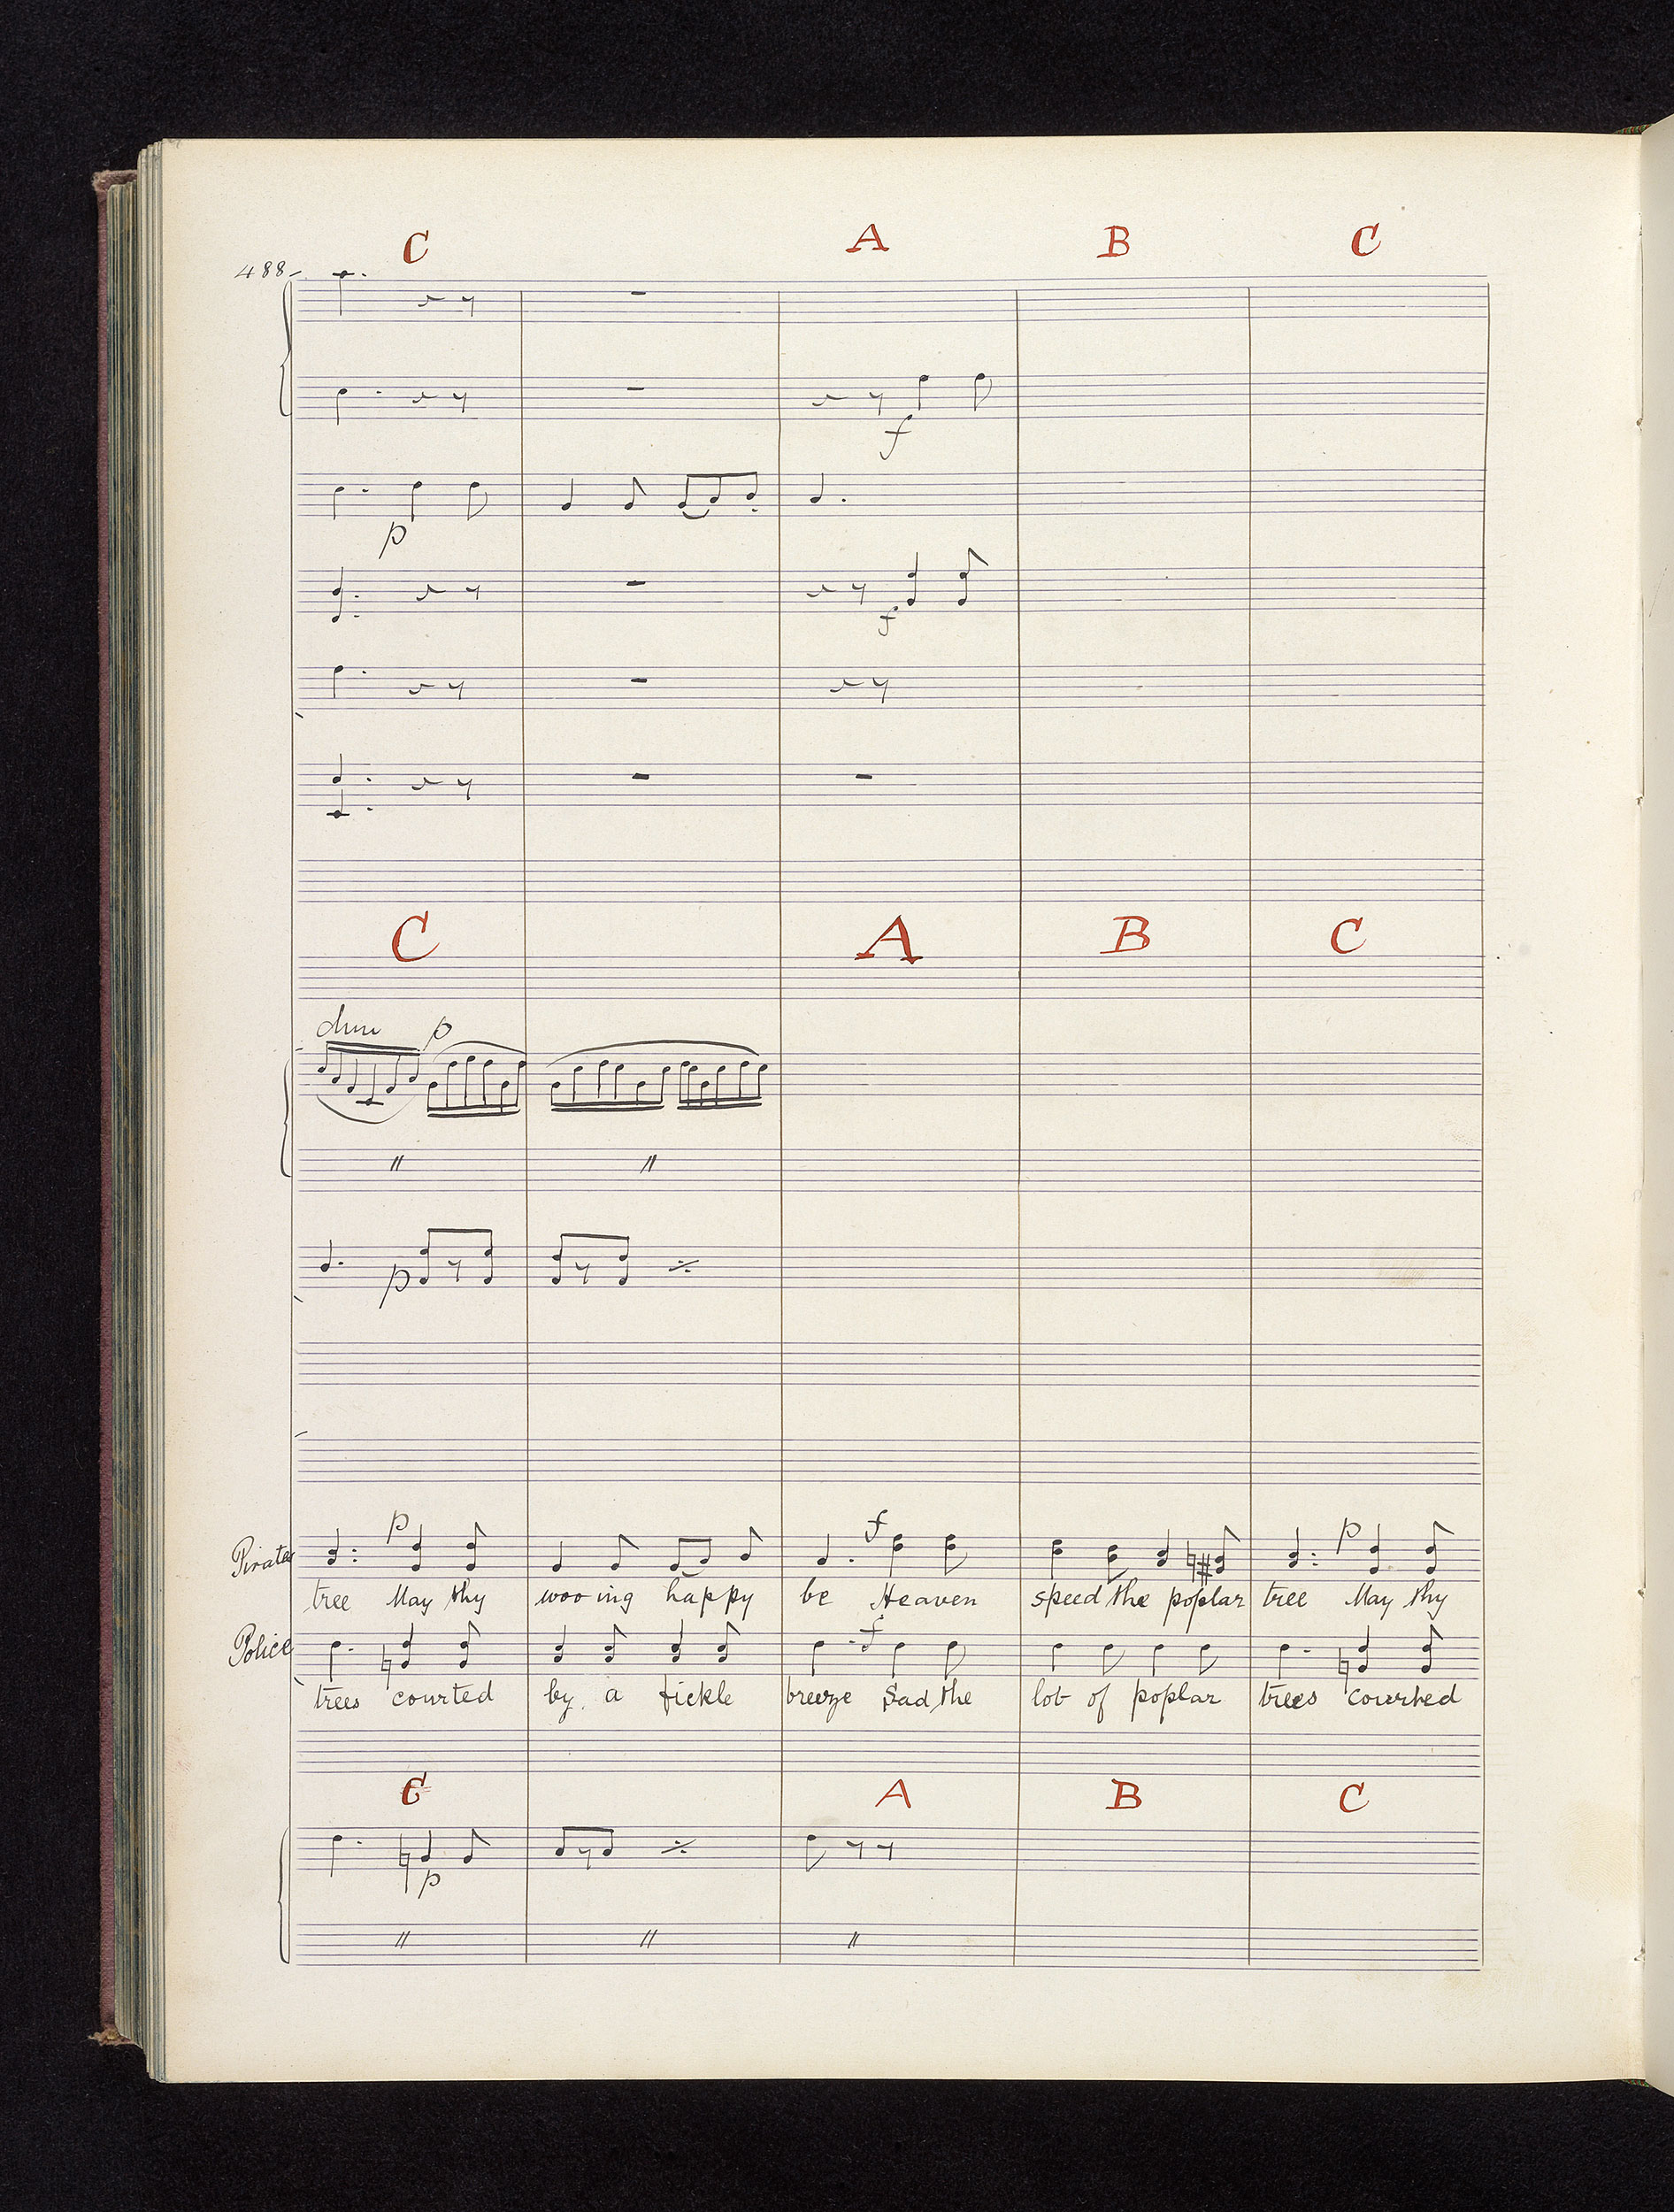 C A B C
488
f
p
f
C A B C
dim p
p
p f p
Pirates
tree May thy woo ing happy be Heaven speed the poplar tree May thy
f
Police
trees courted by a fickle breeze Sad the lot of poplar trees courted
C A B C
p